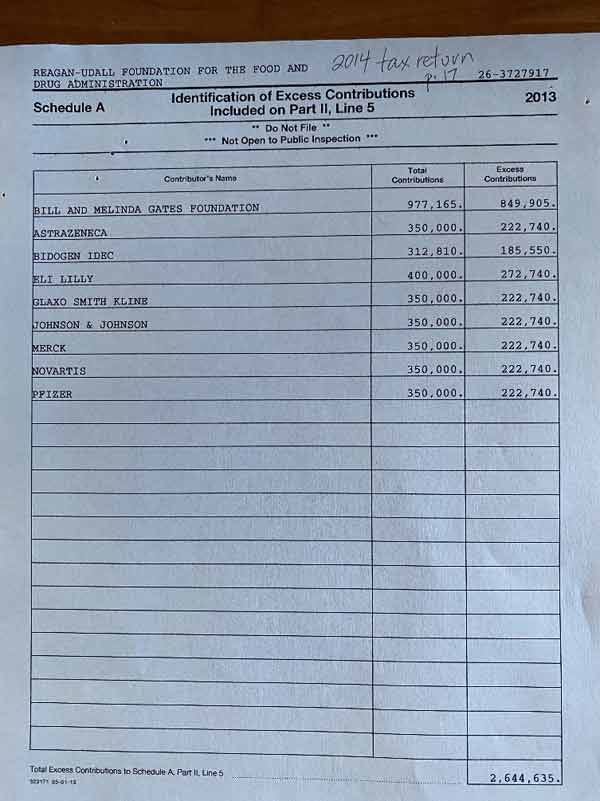 2014 tax return
p. 17
REAGAN-UDALL FOUNDATION FOR THE FOOD AND
DRUG ADMINISTRATION
26-3727917
Schedule A
Identification of Excess Contributions
Included on Part II, Line 5
2013
** Do Not File **
*** Not Open to Public Inspection ***
Contributor's Name Total Contributions Excess Contributions
BILL AND MELINDA GATES FOUNDATION 977,165. 849,905.
ASTRAZENECA 350,000. 222,740.
BIDOGEN IDEC 312,810. 185,550.
ELI LILLY 400,000. 272,740.
GLAXO SMITH KLINE 350,000. 222,740.
JOHNSON & JOHNSON 350,000. 222,740.
MERCK 350,000. 222,740.
NOVARTIS 350,000. 222,740.
PFIZER 350,000. 222,740.
Total Excess Contributions to Schedule A, Part II, Line 5 2,644,635.
323171 05-01-13